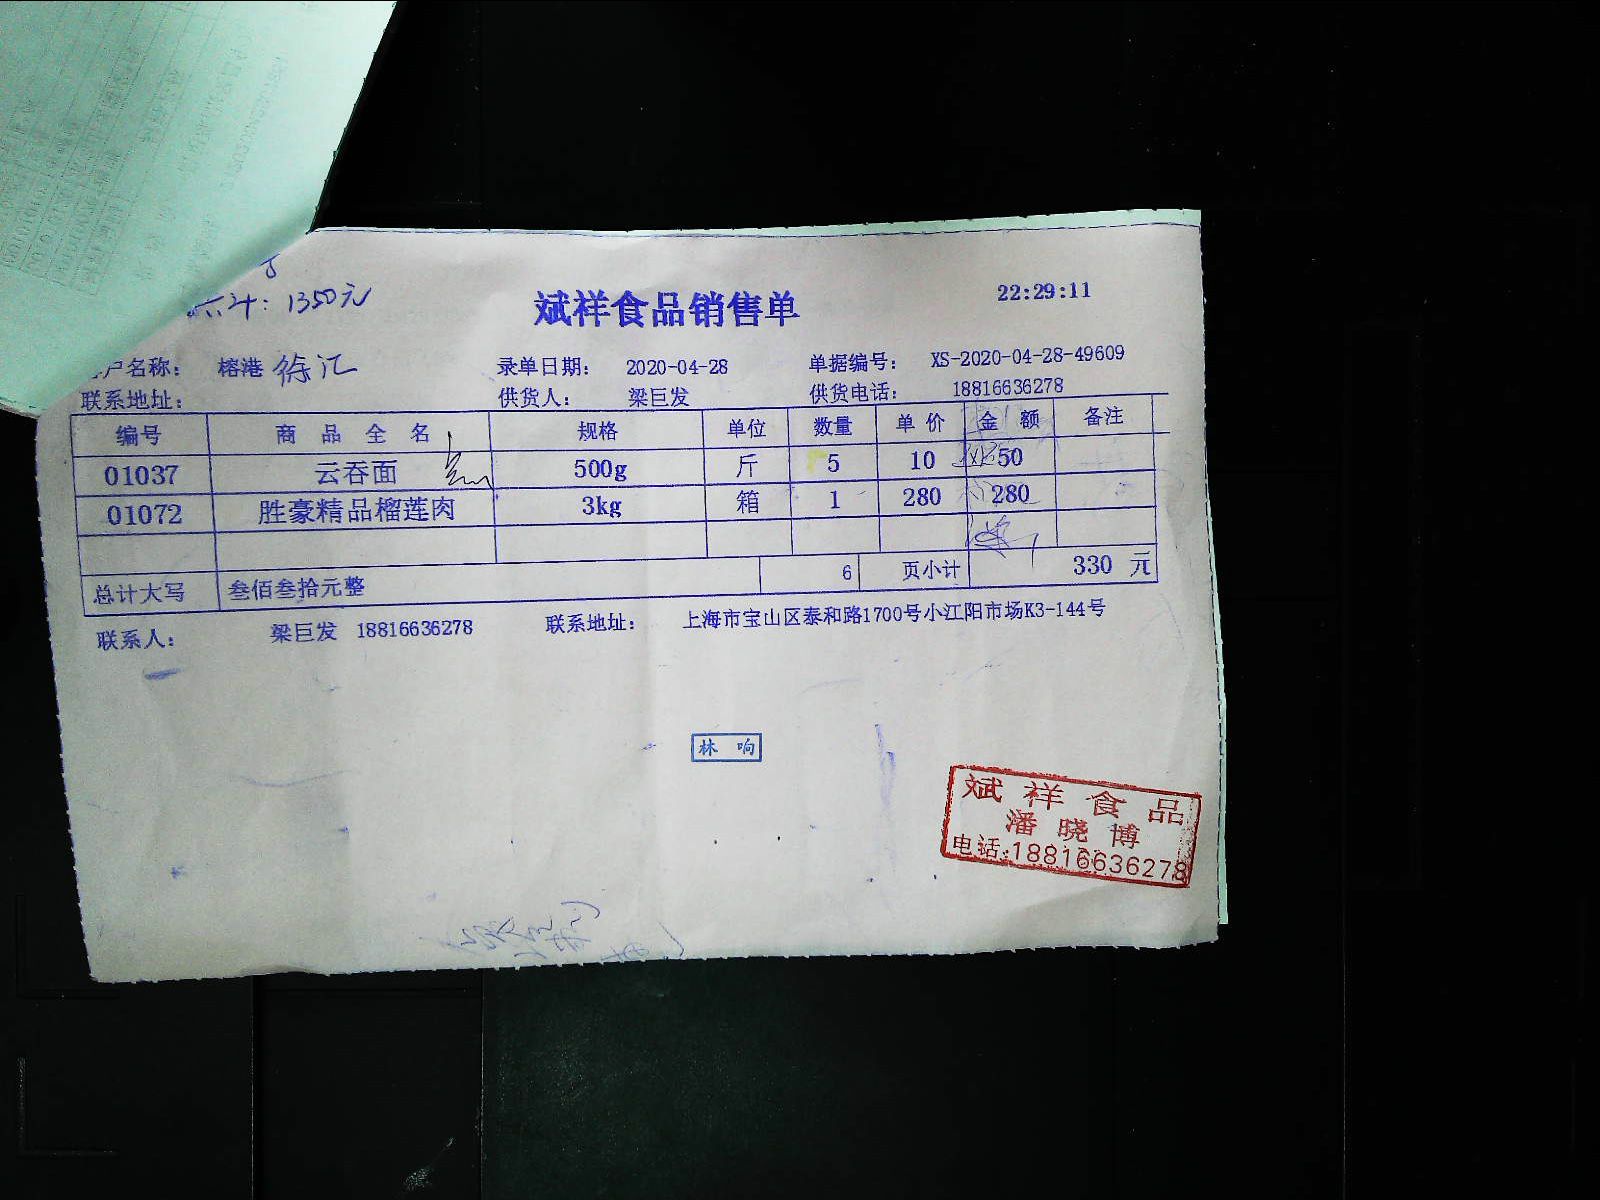 六计：1350元
斌祥食品销售单
22:29:11
户名称： 榕港 徐汇 录单日期： 2020-04-28 单据编号： XS-2020-04-28-49609
联系地址： 供货人： 梁巨发 供货电话： 18816636278
编号 商品全名 规格 单位 数量 单价 金额 备注
01037 云吞面 500g 斤 5 10 50
01072 胜豪精品榴莲肉 3kg 箱 1 280 280
总计大写 叁佰叁拾元整 6 页小计 330 元
联系人： 梁巨发 18816636278 联系地址： 上海市宝山区泰和路1700号小江阳市场K3-144号
林响
斌祥食品
潘晓博
电话:18816636278